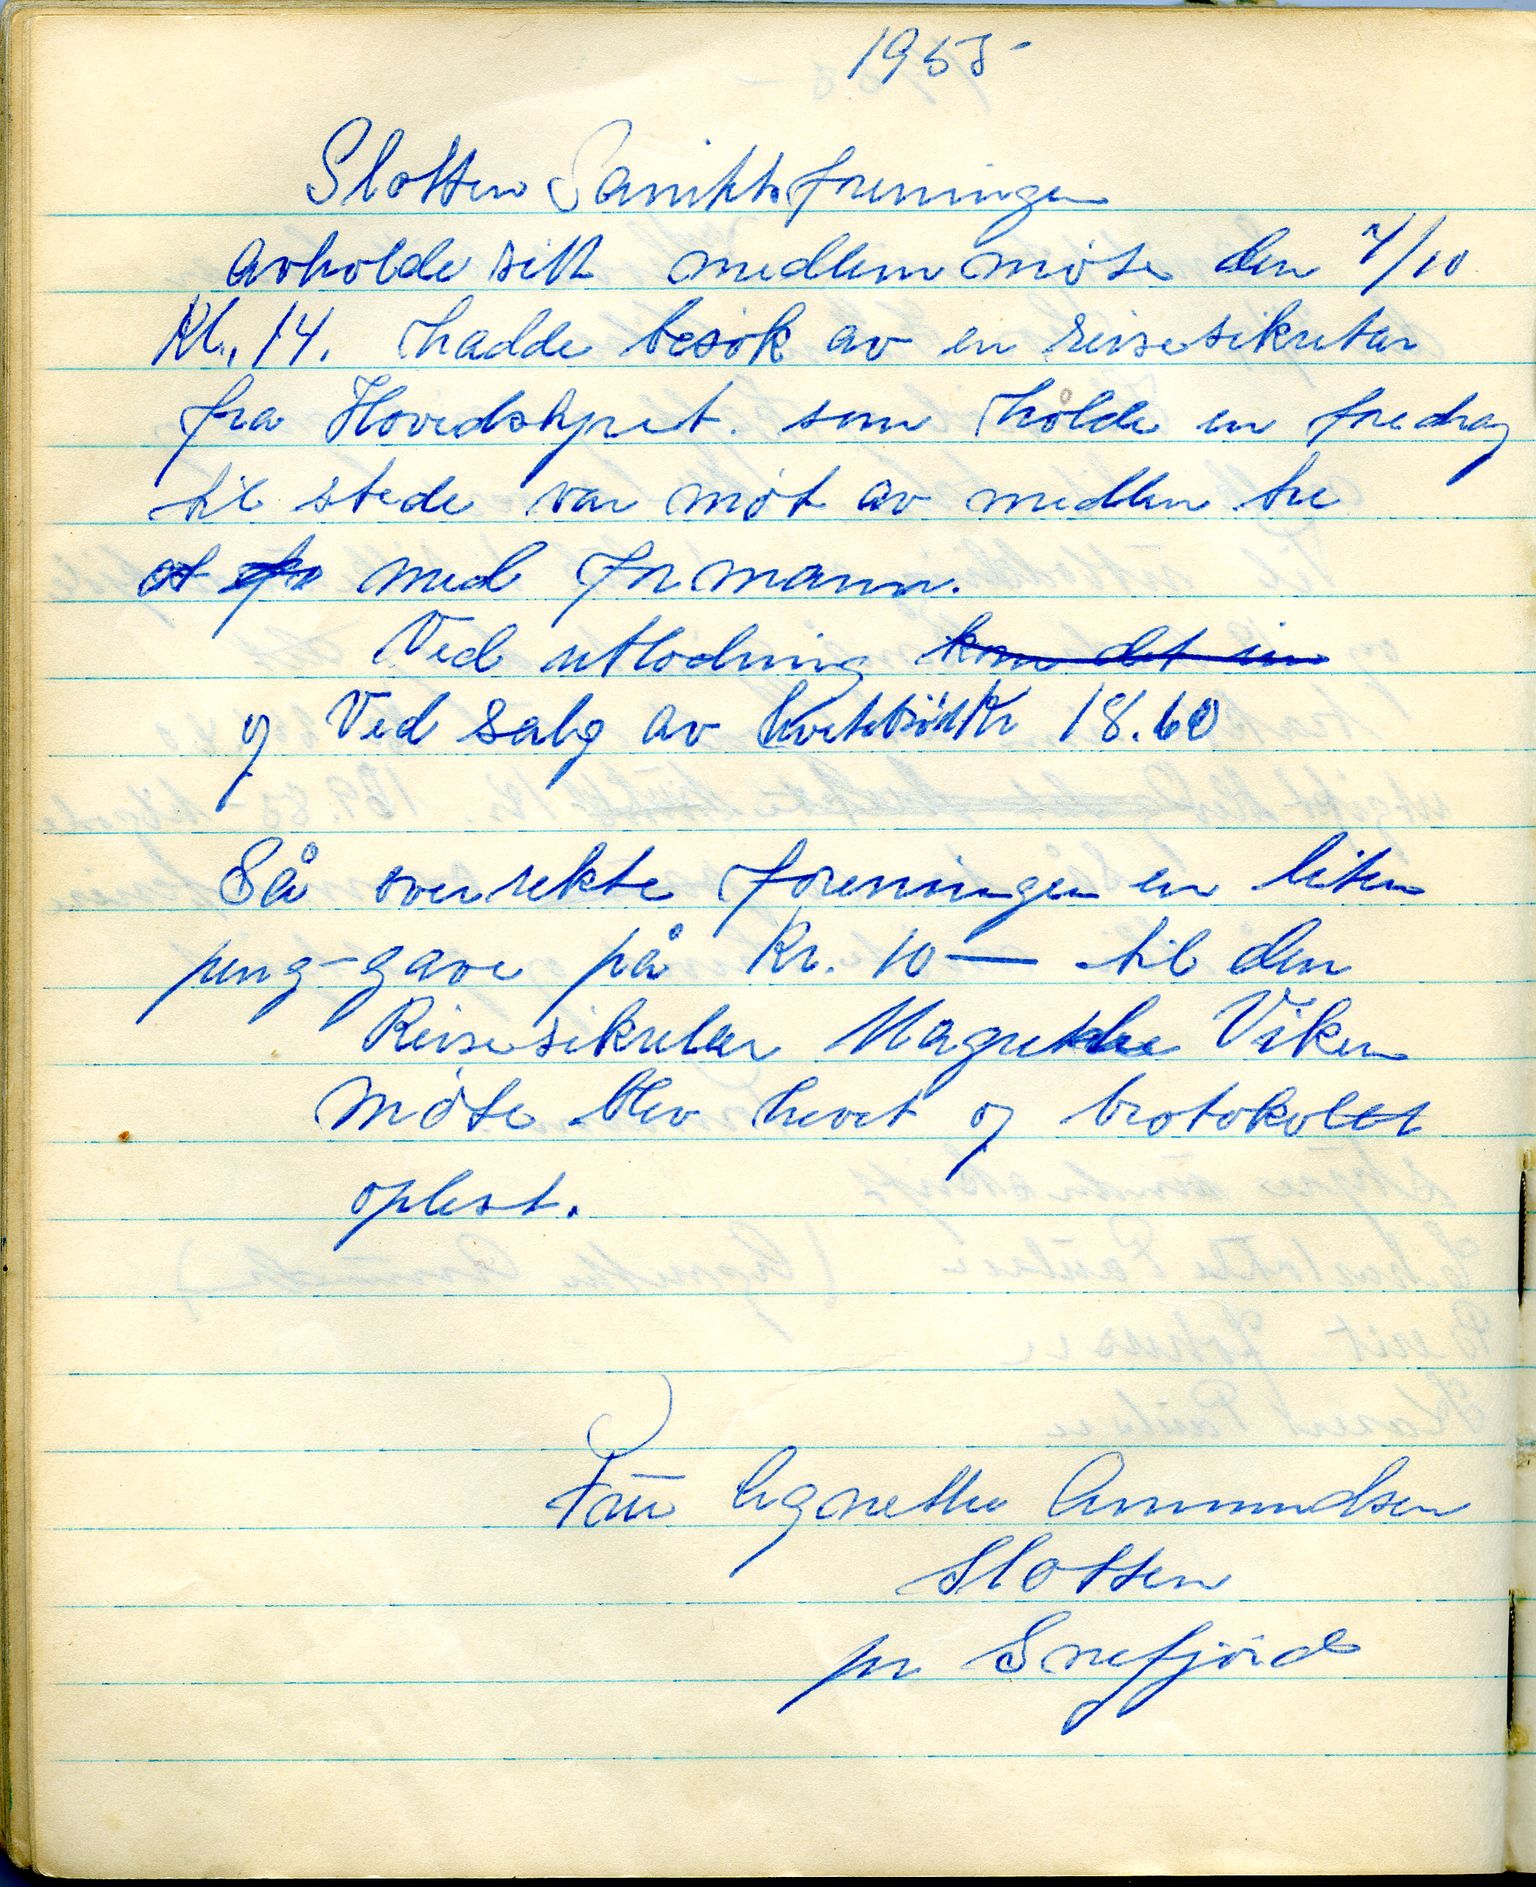 1955
Slotten Sanitetsforeningen
avholde sitt medlem møte den 7/10
Kl. 14. hadde besøk av en reisesikretær
fra Hovedstyret. som holde en foredrag
til stede var møt av medlem tre
med formann.
Ved utlodning kom det in
og Ved salg av Kr 18.60
Så overrekte foreningen en liten
peng-gave på Kr. 10— til den
Reisesikretær Viken
møte blev hevet og brotokollet
oplest.
Fru Agnethe Ammundsen
Slotten
pr Snefjord